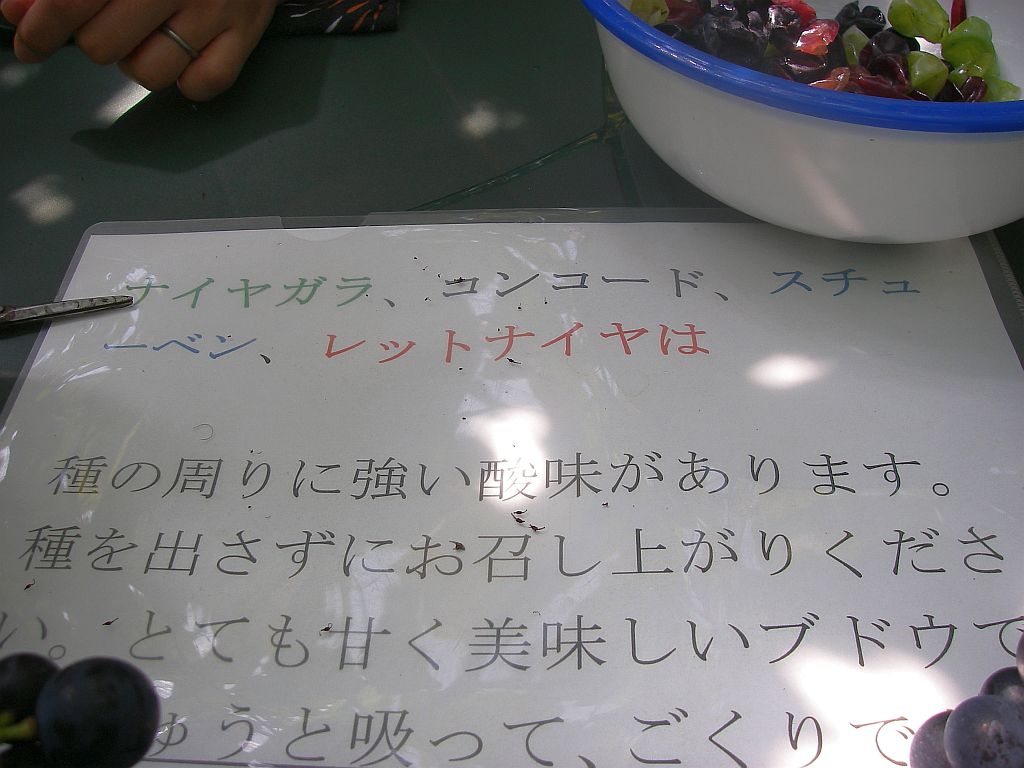 ナイヤガラ、コンコード、スチュ
ーベン、レットナイヤは
種の周りに強い酸味があります。
種を出さずにお召し上がりくださ
い。とても甘く美味しいブドウで
ゅうと吸って、ごくりで